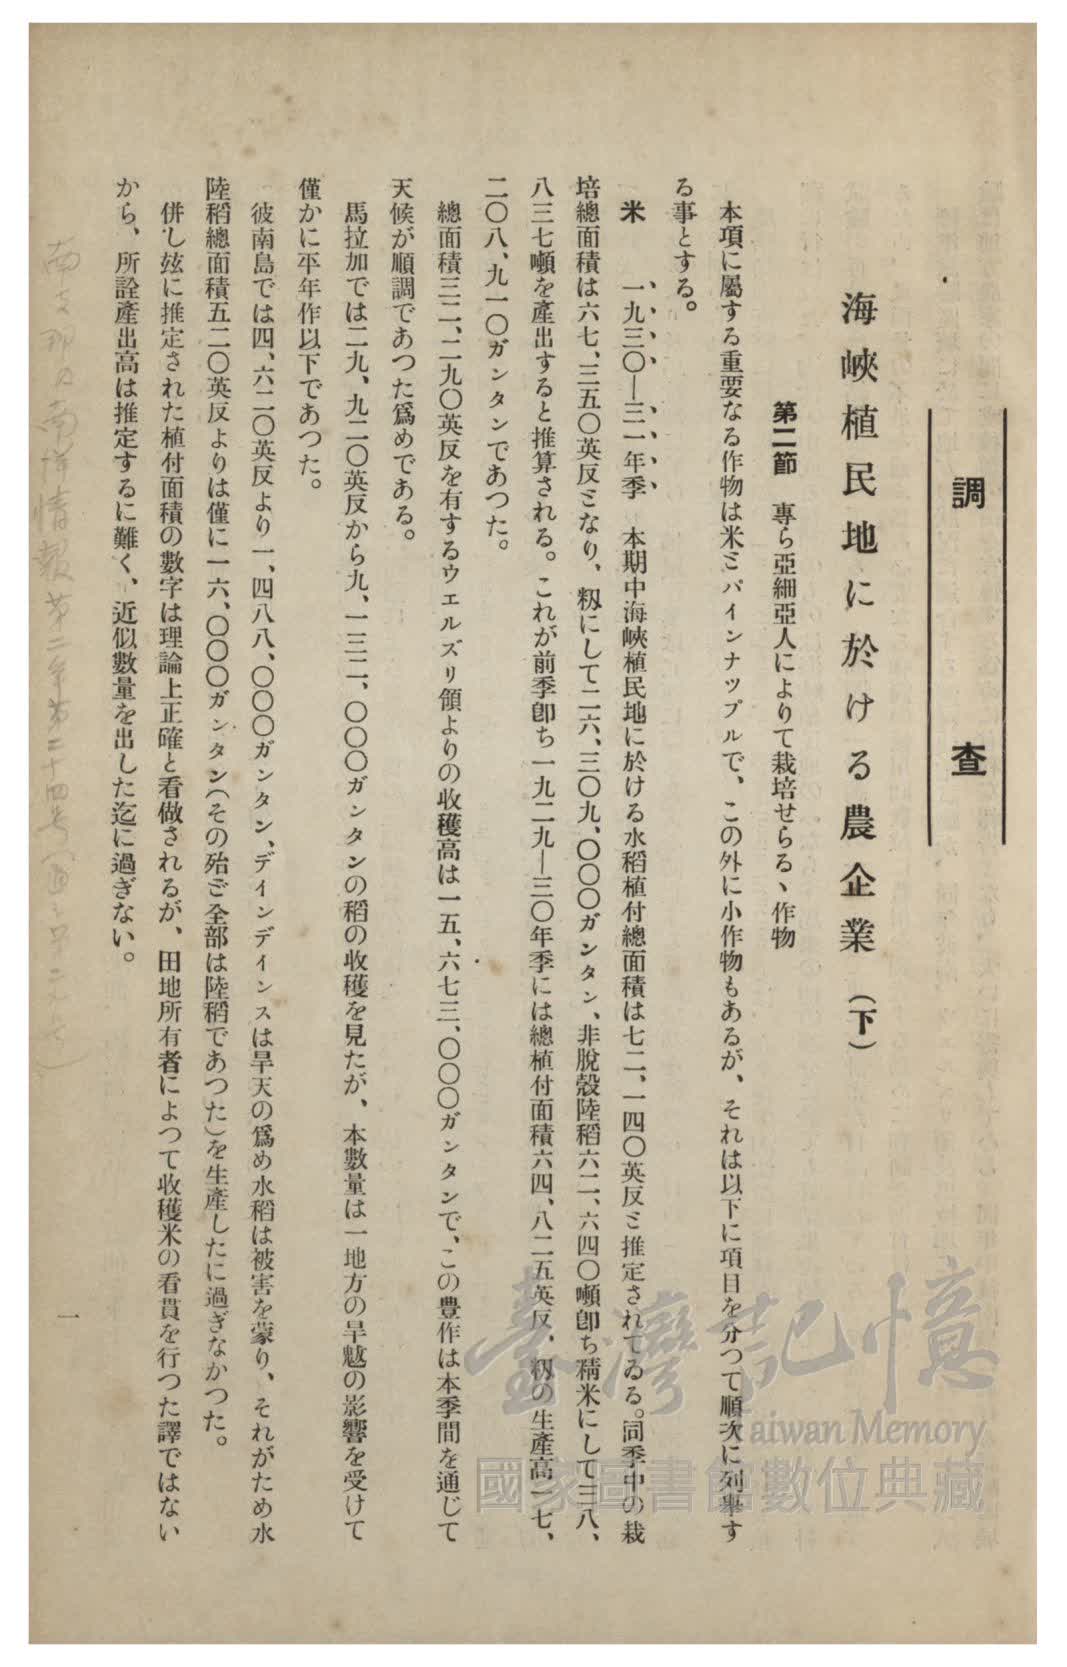 調查
海峽植民地に於ける農企業（下）
第二節　專ら亞細亞人によりて栽培せらるゝ作物
本項に屬する重要なる作物は米ミパインナツプルで、この外に小作物もあるが、それは以下に項目を分つて順次に列擧す
る事とする。
米　一九三〇—三一年季　本期中海峽植民地に於ける水稻植付總面積は七二、一四〇英反ミ推定されてゐる。同季中の栽
培總面積は六七、三五〇英反ミなり、籾にして二六、三〇九、〇〇〇ガンタン、非脫殼陸稻六二、六四〇噸卽ち精米にして三八、
八三七噸を產出すると推算される。これが前季卽ち一九二九—三〇年季には總植付面積六四、八二五英反、籾の生產高一七、
二〇八、九一〇ガンタンであつた。
總面積三二、二九〇英反を有するウエルズリ領よりの收穫高は一五、六七三、〇〇〇ガンタンで、この豊作は本季間を通じて
天候が順調であつた爲めである。
馬拉加では二九、九二〇英反から九、一三二、〇〇〇ガンタンの稻の收穫を見たが、本數量は一地方の旱魃の影響を受けて
僅かに平年作以下であつた。
彼南島では四、六二〇英反より一、四八八、〇〇〇ガンタン、デインデインスは旱天の爲め水稻は被害を蒙り、それがため水
陸稻總面積五二〇英反よりは僅に一六、〇〇〇ガンタン（その殆ご全部は陸稻であつた）を生產したに過ぎなかつた。
併し玆に推定された植付面積の數字は理論上正確と看做されるが、田地所有者によつて收穫米の看貫を行つた譯ではない
から、所詮產出高は推定するに難く、近似數量を出した迄に過ぎない。
一
南支那及南洋情報第二年第二十四号
臺灣記憶
Taiwan Memory
國家圖書館數位典藏